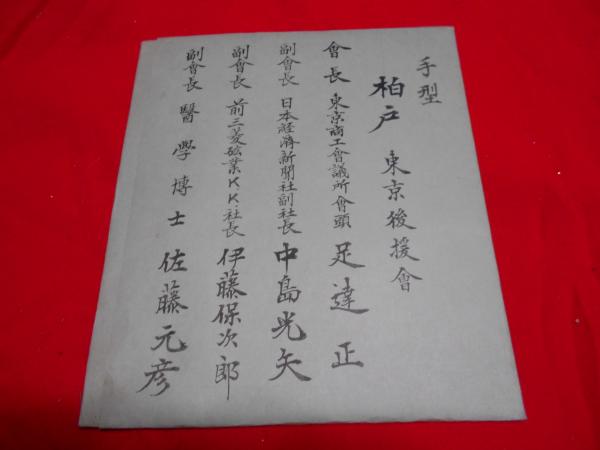 手型
柏戸 東京後援會
會長 東京商工會議所會頭 足達正
副會長 日本経済新聞社副社長 中島光矢
副會長 前三菱鉱業KK.社長 伊藤保次郎
副會長 醫學博士 佐藤元彦